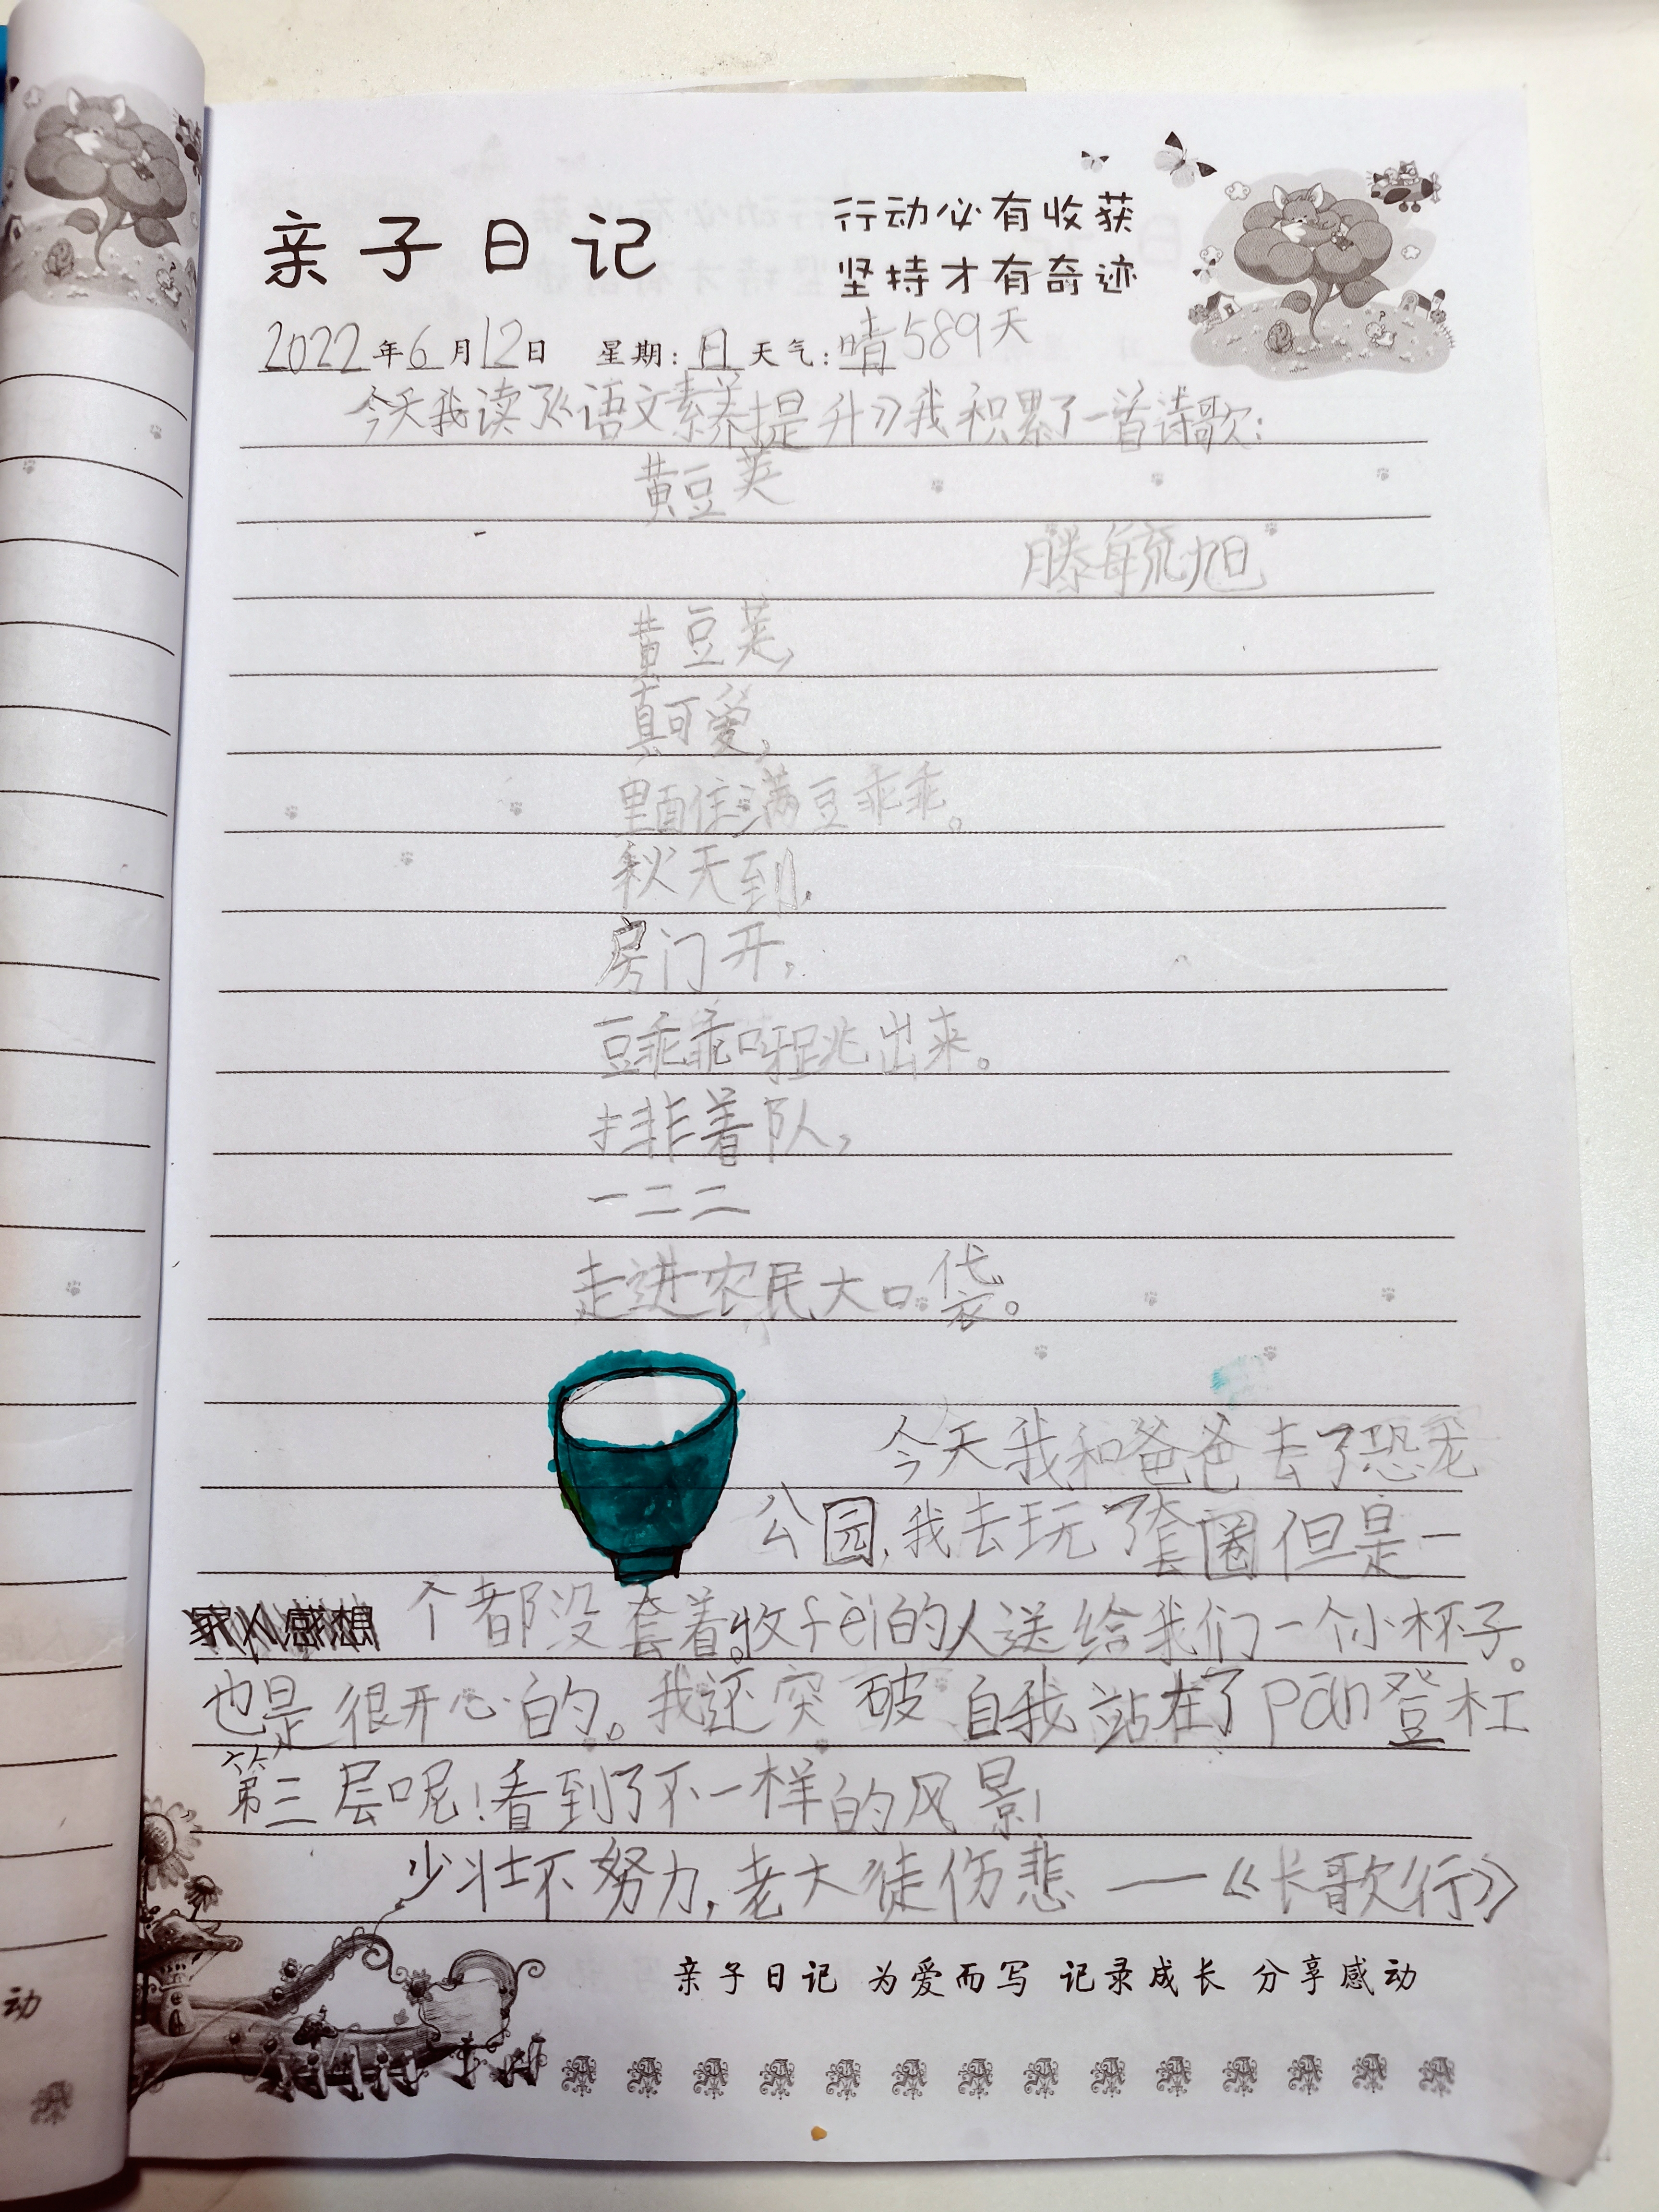 亲子日记
行动必有收获
坚持才有奇迹
2022年6月12日 星期:日 天气:晴 589天
今天我读了《语文素养提升》我积累了一首诗歌:
黄豆荚
滕毓旭
黄豆荚,
真可爱,
里面住满豆乖乖。
秋天到,
房门开,
豆乖乖呀跳出来。
排着队,
一二二
走进农民大口袋。
今天我和爸爸去了恐龙
公园,我去玩了套圈但是一
家人感想
个都没套着。收fèi的人送给我们一个小杯子。
也是很开心的。我还突破自我站在了pān登杠
第三层呢!看到了不一样的风景!
少壮不努力,老大徒伤悲 ——《长歌行》
亲子日记 为爱而写 记录成长 分享感动
动